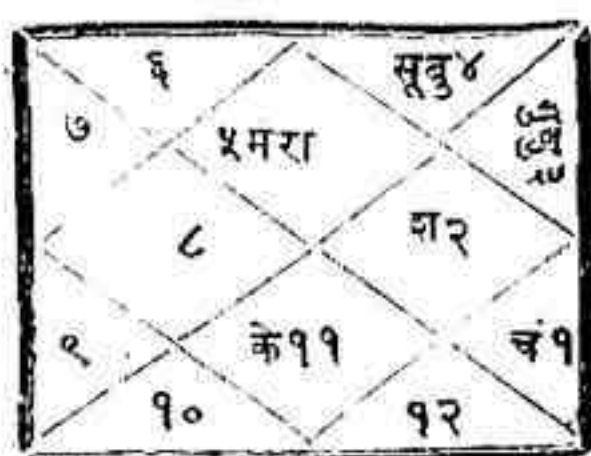 ६
सूबु४
७
५मरा
८
श२
९
के११
चं१
१०
१२